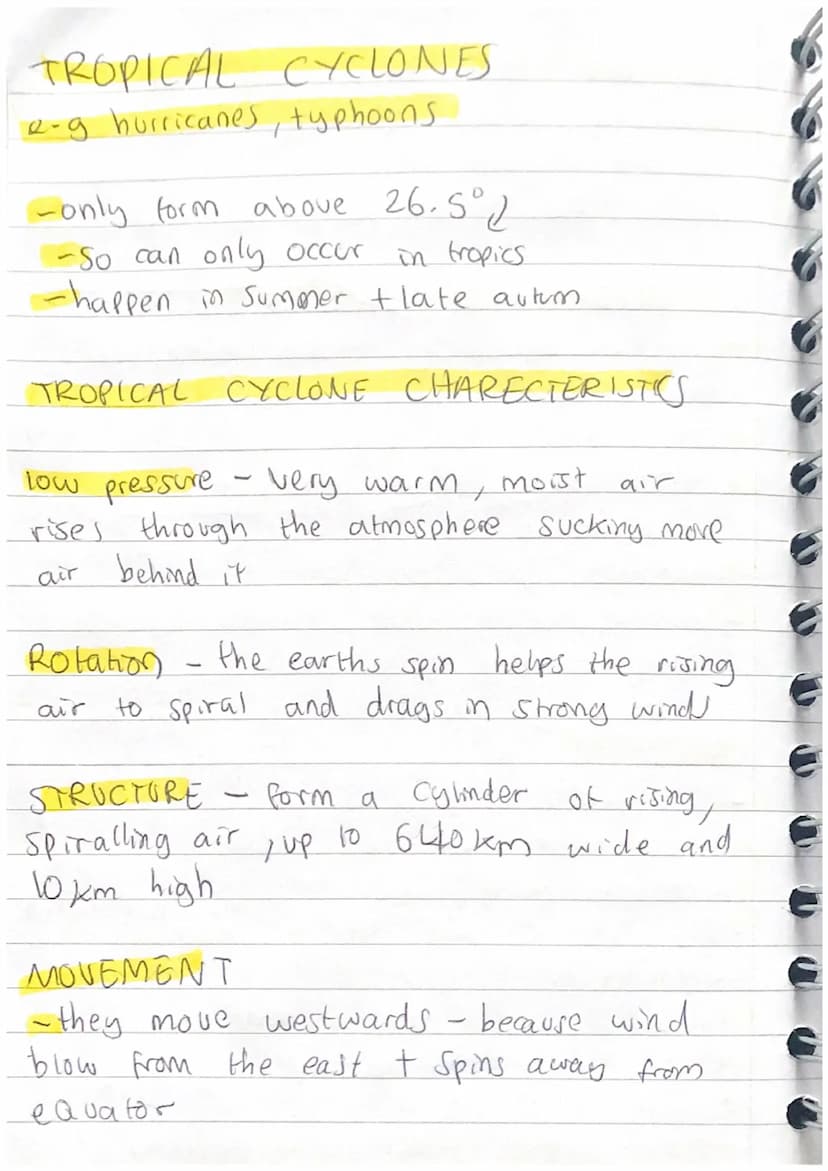 TROPICAL CYCLONES
e-g hurricanes, typhoons
-only form above 26.5°
-so can only occur in tropics
-happen in summer + late autum
TROPICAL CYCLONE CHARECTERISTICS
low pressure - very warm, moist air
rises through the atmosphere sucking more
air behind it
Rotation - the earths spin helps the rising
air to spiral and drags in strong winds
STRUCTURE - form a cylinder of rising,
spiralling air, up to 640km wide and
10km high
MOVEMENT
-they move westwards - because wind
blow from the east + spins away from
equator